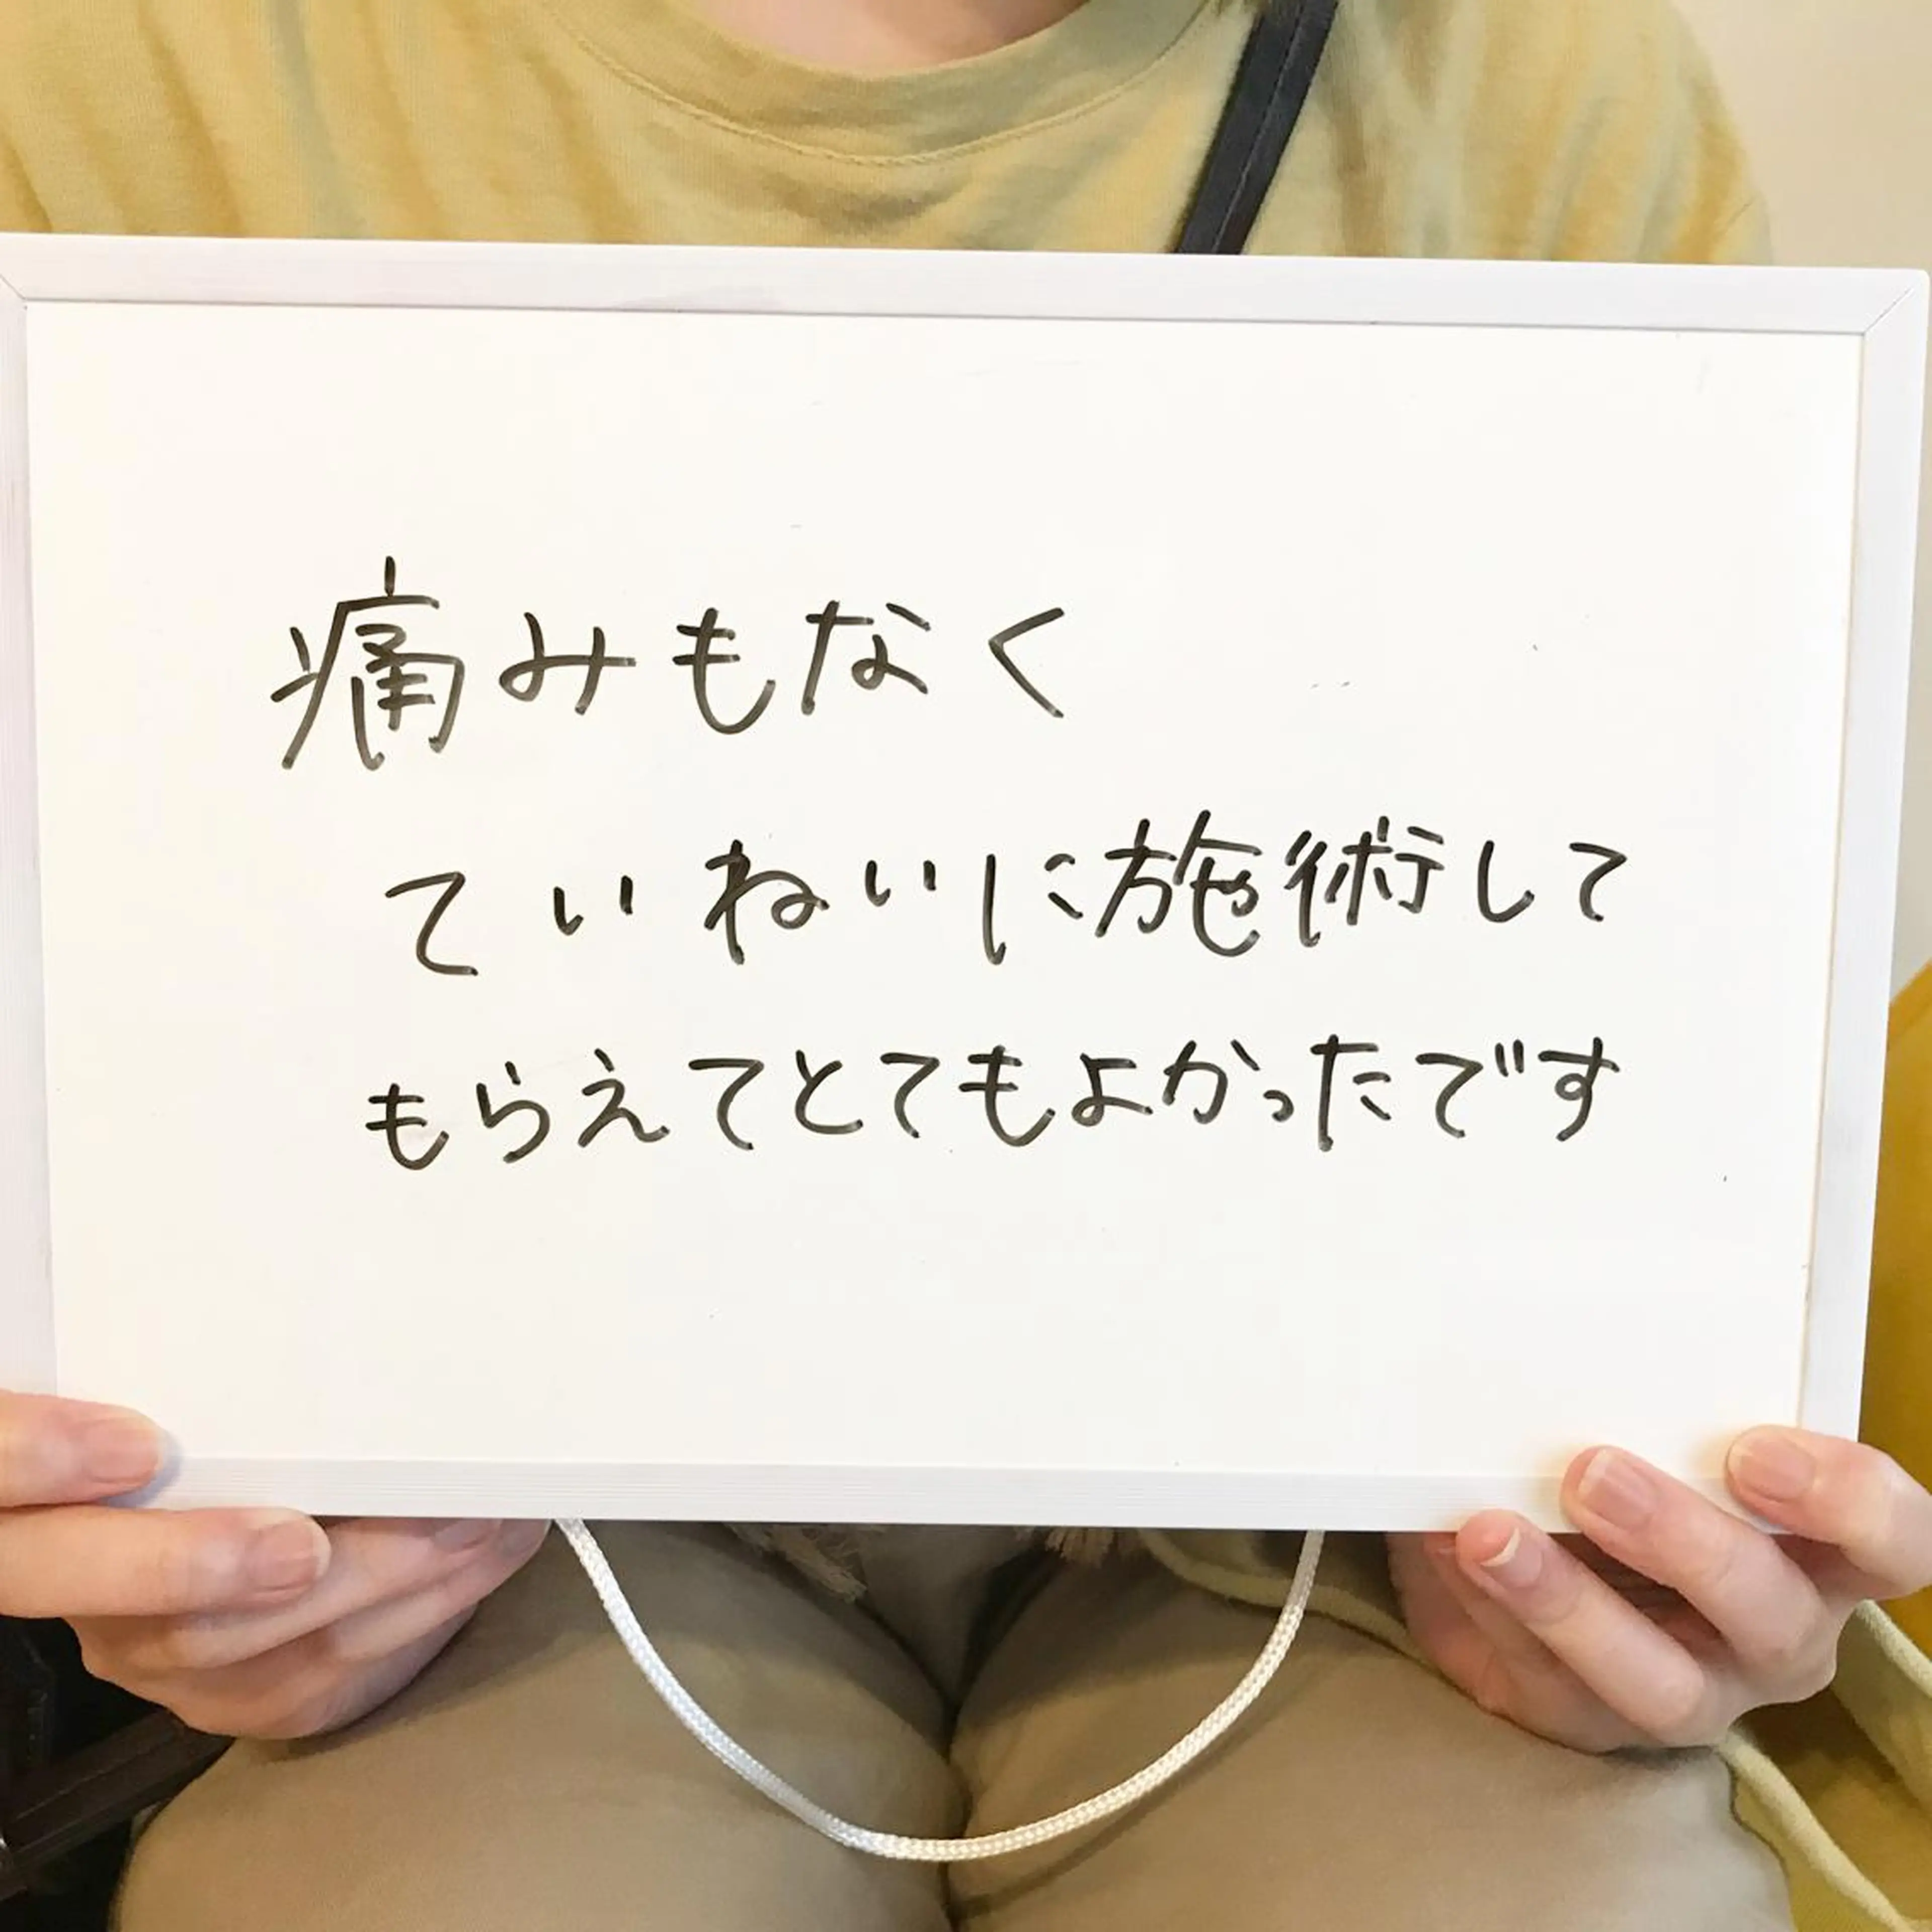 痛みもなく
ていねいに施術して
もらえてとてもよかったです